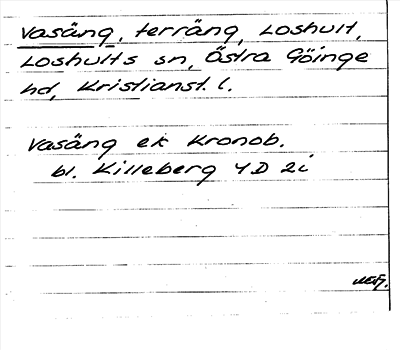 Vasäng, terräng, Loshult,
Loshults sn, Östra Göinge
hd, Kristianst. l.
Vasäng ek Kronob.
bl. Killeberg 4D 2i